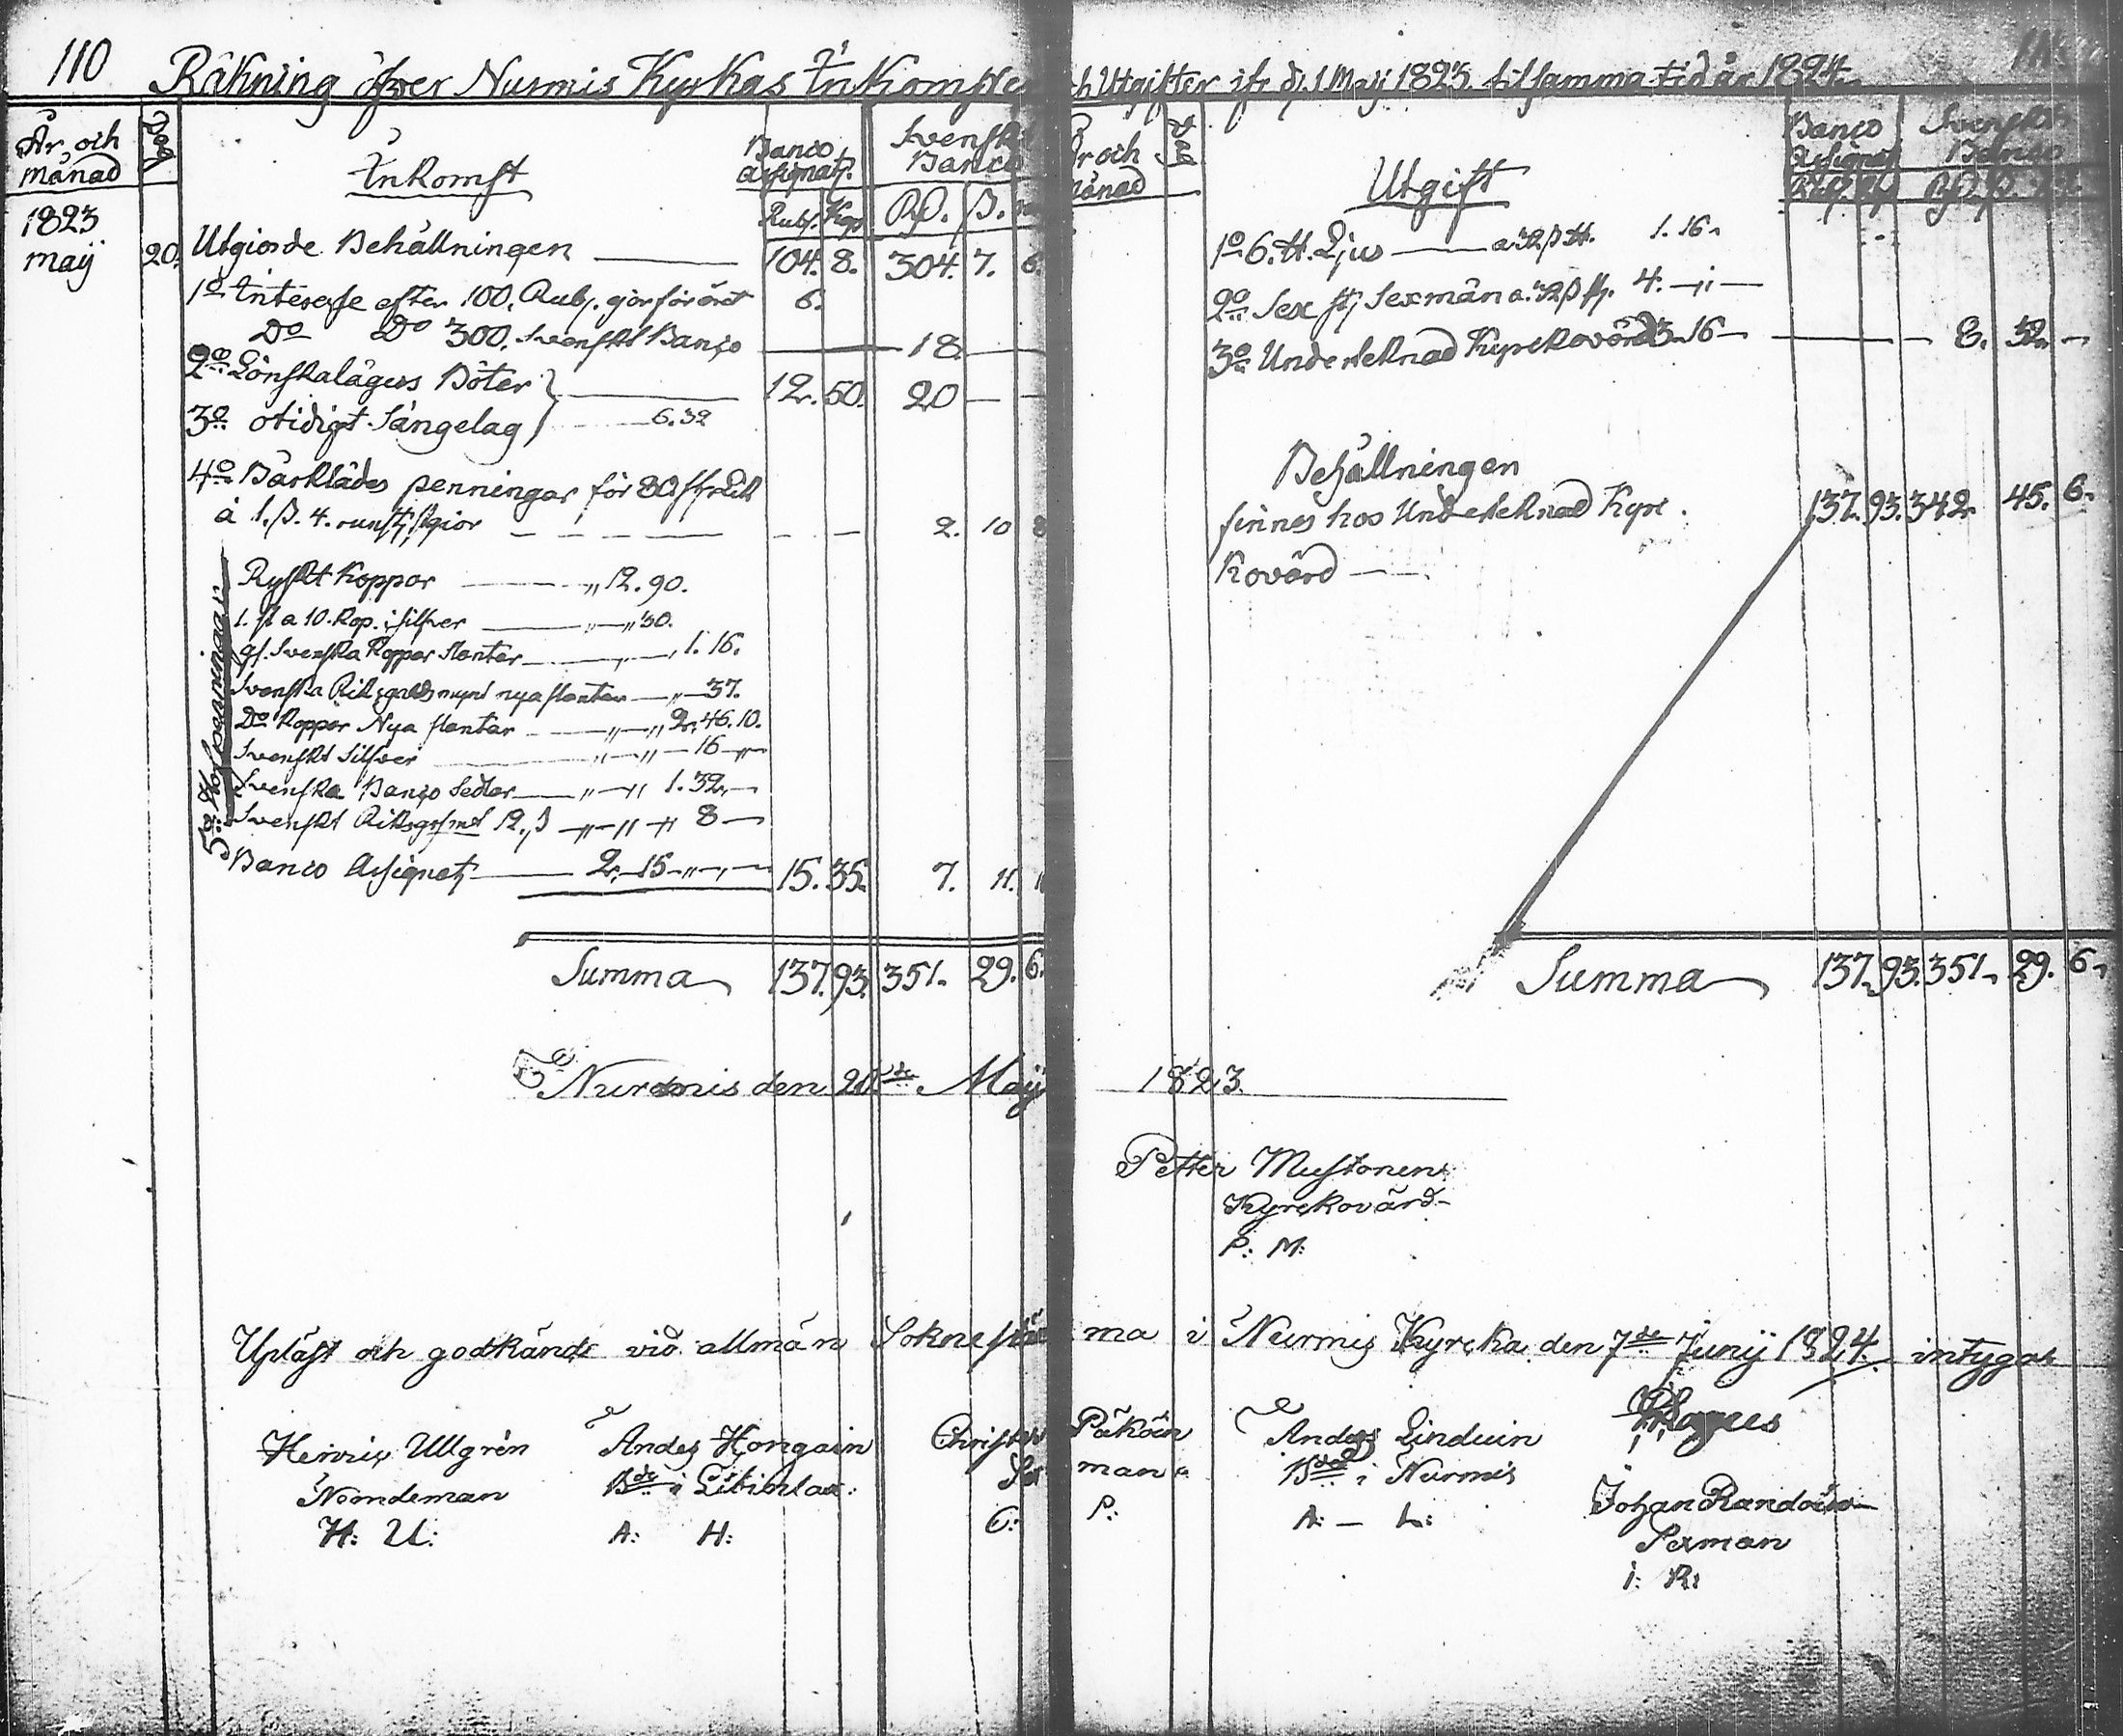 110 Räkning öfver Nurmis Kyrkas Inkomster
År och månad
Dag
Inkomst
Banco Assignatj.
Svenskt Banco
Rub. Kop. Rd. ß.
1823
maij 20. Utgiorde Behållningen 104. 8. 304. 7. 6.
1o Interesse efter 100. Rub. gör för året 6.
Do Do 300. Svenskt Banco 18.
2o Lönskalägers Böter
3o otidigt Sängelag 6.32 12. 50. 20 — —
4o Bårklädes penningar för 80
à 1. ß. 4. runstj. gior 2. 10 8
5o Håfpenningar
Ryskt Koppar 12. 90.
1. st a 10. Kop. i silfver 30.
gl. Svenska Koppar slantar 1. 16.
Svenska Riksgälds mynt nya slantar 37.
Do Koppar Nya slantar 2. 46. 10.
Svenskt Silfver 16
Svenska Banco Sedlar 1. 32.
Svenskt Riksgs mt 12. ß 8
Banco Assignatj 2. 15 15. 35. 7. 11.
Summa 137. 93. 351. 29. 6.
Nurmis den 20de Maij
Upläst och godkändt vid allmän Sokne stäm
Henric Ullgrén
Nämdeman
H: U:
Anders Hongain
Bde i
A: H:
och Utgifter ifr. d. 1 Maij 1823. til samma tid år 1824.
År och månad
Dag
Utgift
Banco Assignat
Svenskt Banco
1o 6. ℔. Ljus a 32 ß ℔. 1. 16.
2o Sex stj Sexmän a. 32 ß stj. 4.
3o Undertecknad Kyrckovärd 3. 16 8. 32.
Behållningen
finnes hos Undertecknad Kyrc
kovärd 137. 93. 342. 45. 6.
Summa 137. 93. 351. 29. 6.
1823.
Petter Mustonen
Kyrckovärd
P: M:
ma i Nurmis Kyrcka den 7de Junij 1824. intygar
Christer Päköin
Sexman
C: P:
Anders Linduin
Bde i Nurmis
A: — L:
Johan Randoin
Sexman
I: R: